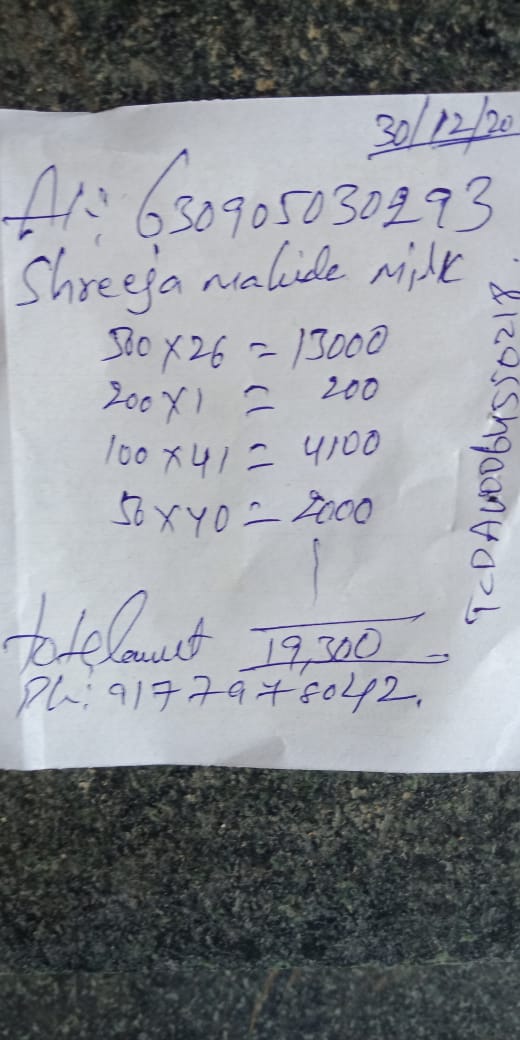 30/12/20
A/c: 630905030293
Shreeja mahide Milk
500 x 26 = 13000
200 x 1 = 200
100 x 41 = 4100
50 x 40 = 2000
Total amut 19,300
Ph: 9177978042.